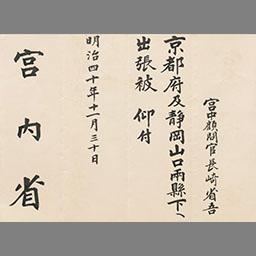 宮中顧問官長崎省吾
京都府及静岡山口両縣下ヘ
出張被 仰付
明治四十年十一月三十日
宮内省